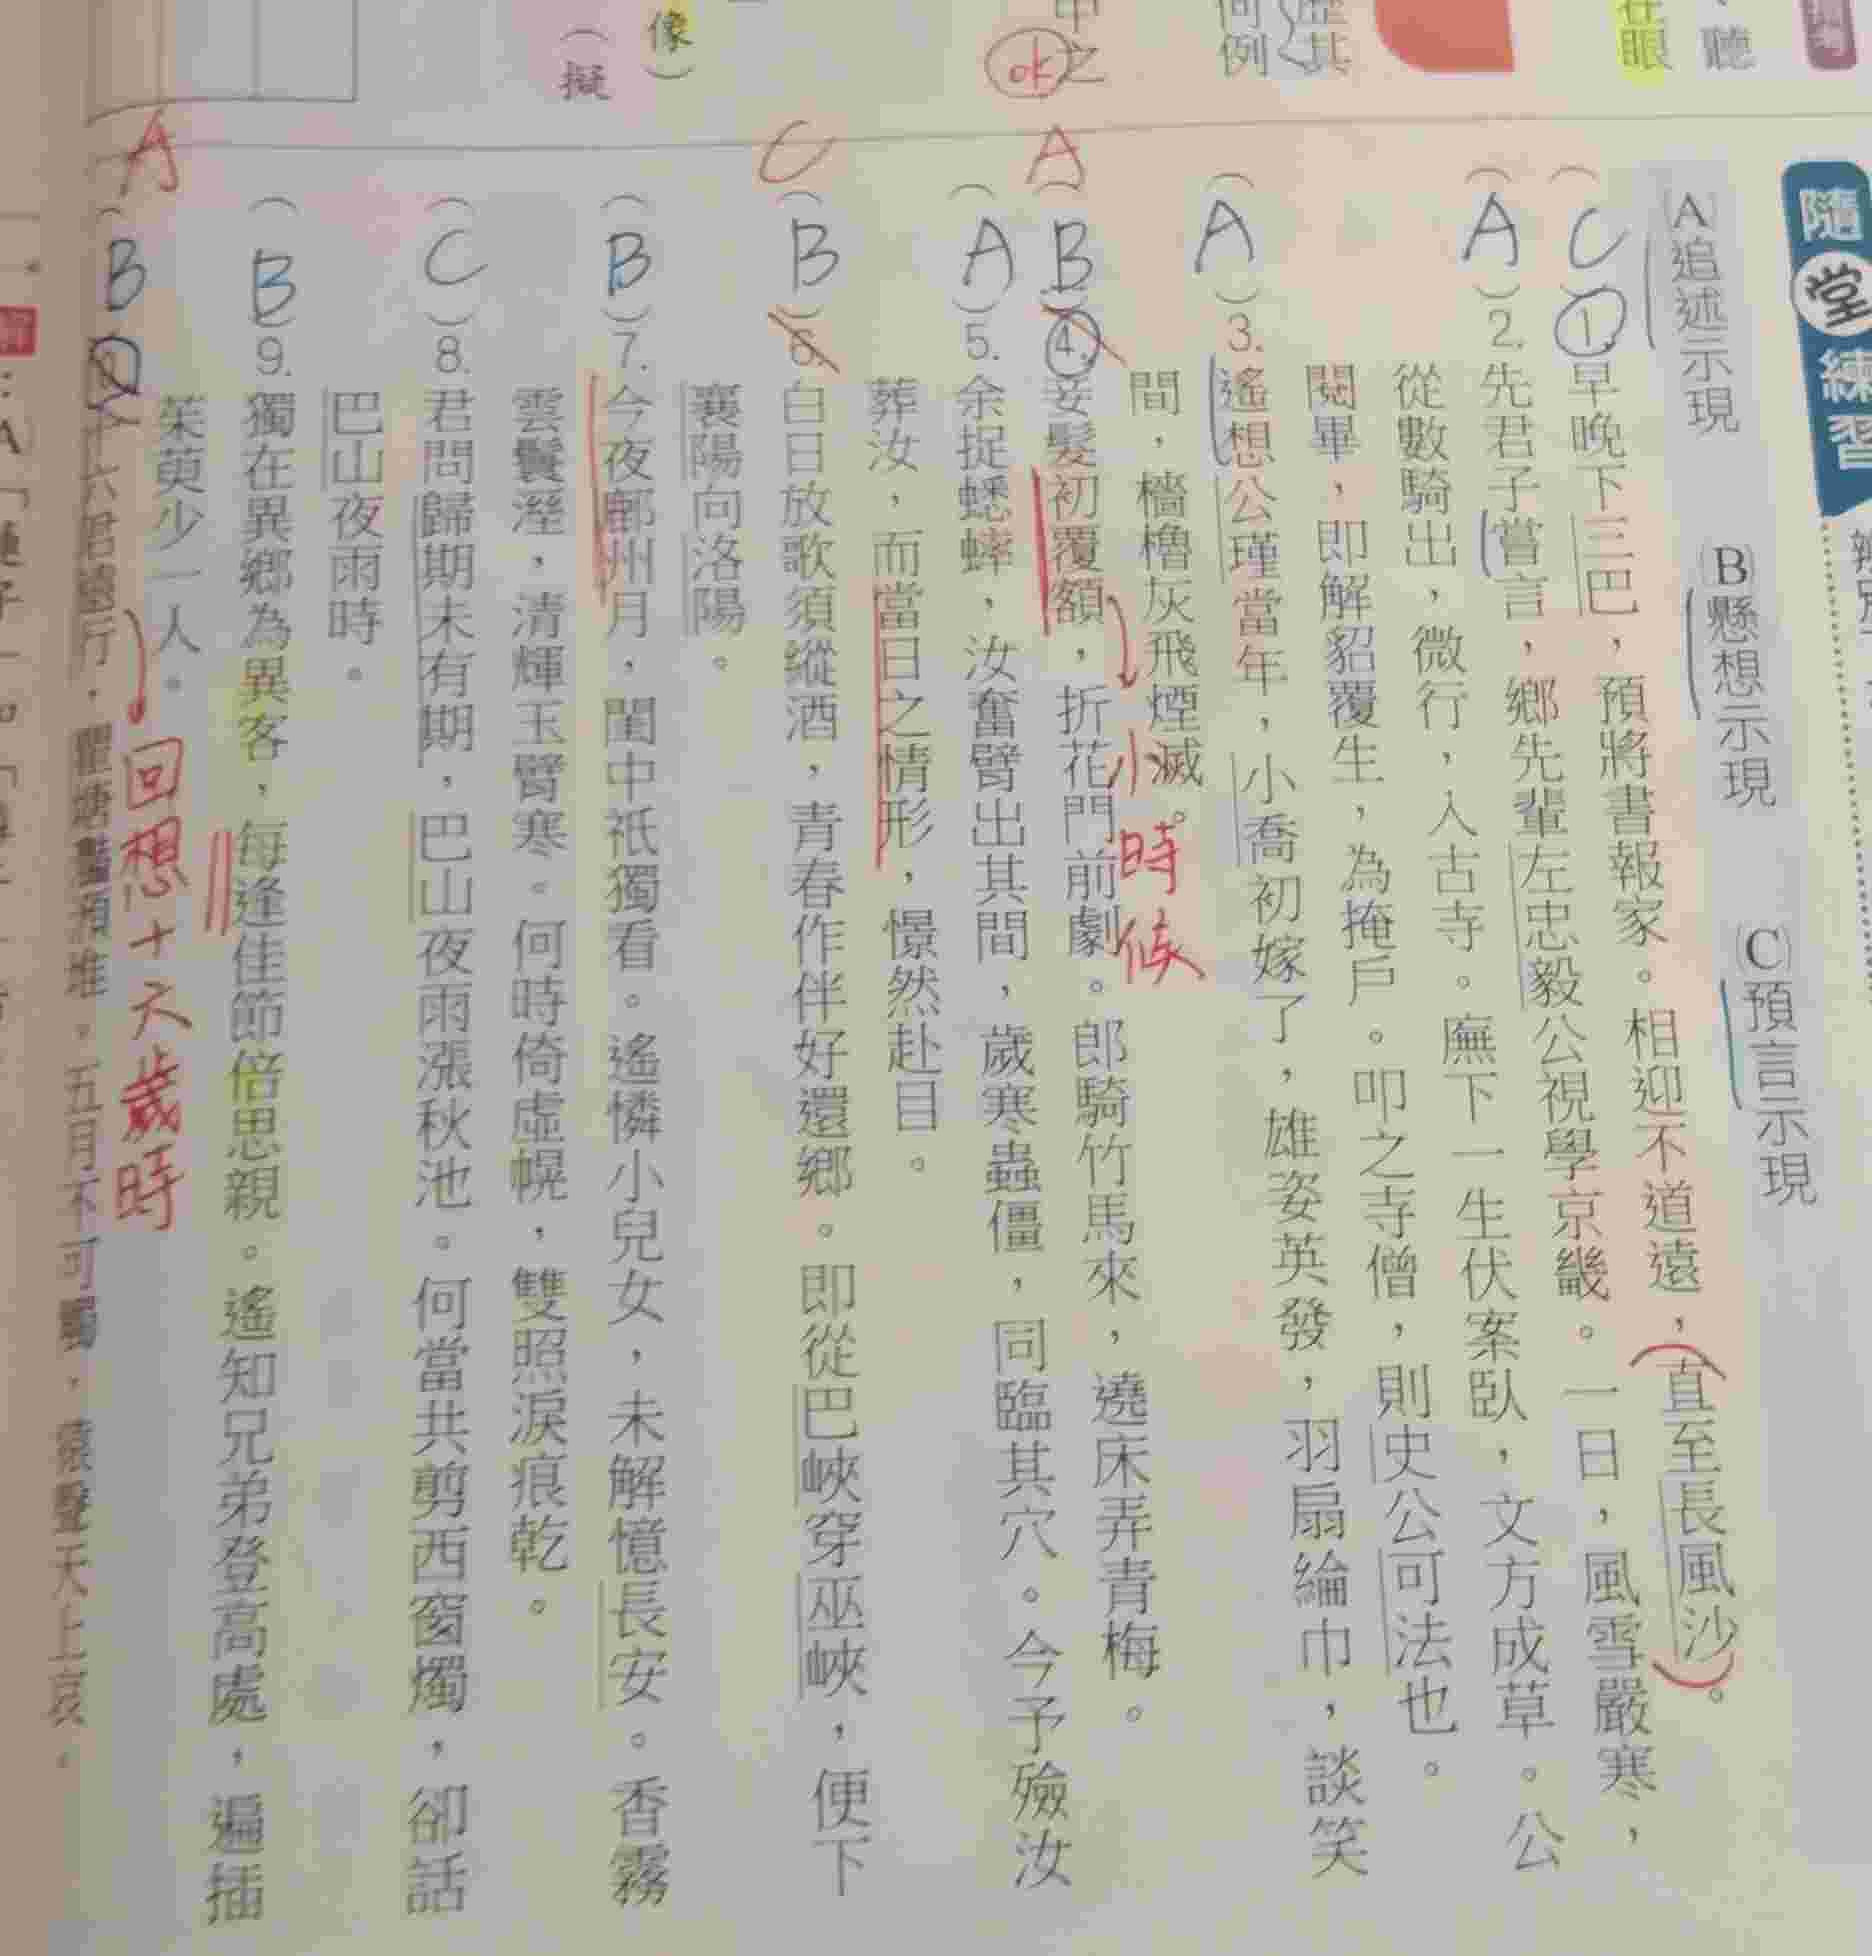 聽
在眼
歷其
何例
中之
ok
像）
（擬
隨堂練習
(A)追述示現 (B)懸想示現 (C)預言示現
( C ) 1. 早晚下三巴，預將書報家。相迎不道遠，直至長風沙。
( A ) 2. 先君子嘗言，鄉先輩左忠毅公視學京畿。一日，風雪嚴寒，
從數騎出，微行，入古寺。廡下一生伏案臥，文方成草。公
閱畢，即解貂覆生，為掩戶。叩之寺僧，則史公可法也。
( A ) 3. 遙想公瑾當年，小喬初嫁了，雄姿英發，羽扇綸巾，談笑
間，檣櫓灰飛煙滅。
小時候
A
( B ) 4. 妾髮初覆額，折花門前劇。郎騎竹馬來，遶床弄青梅。
( A ) 5. 余捉蟋蟀，汝奮臂出其間，歲寒蟲僵，同臨其穴。今予殮汝
葬汝，而當日之情形，憬然赴目。
C
( B ) 6. 白日放歌須縱酒，青春作伴好還鄉。即從巴峽穿巫峽，便下
襄陽向洛陽。
( B ) 7. 今夜鄜州月，閨中祇獨看。遙憐小兒女，未解憶長安。香霧
雲鬟溼，清輝玉臂寒。何時倚虛幌，雙照淚痕乾。
( C ) 8. 君問歸期未有期，巴山夜雨漲秋池。何當共剪西窗燭，卻話
巴山夜雨時。
( B ) 9. 獨在異鄉為異客，每逢佳節倍思親。遙知兄弟登高處，遍插
茱萸少一人。
回想十六歲時
A
( B 十六君遠行，瞿塘灩澦堆。五月不可觸，猿聲天上哀。
解